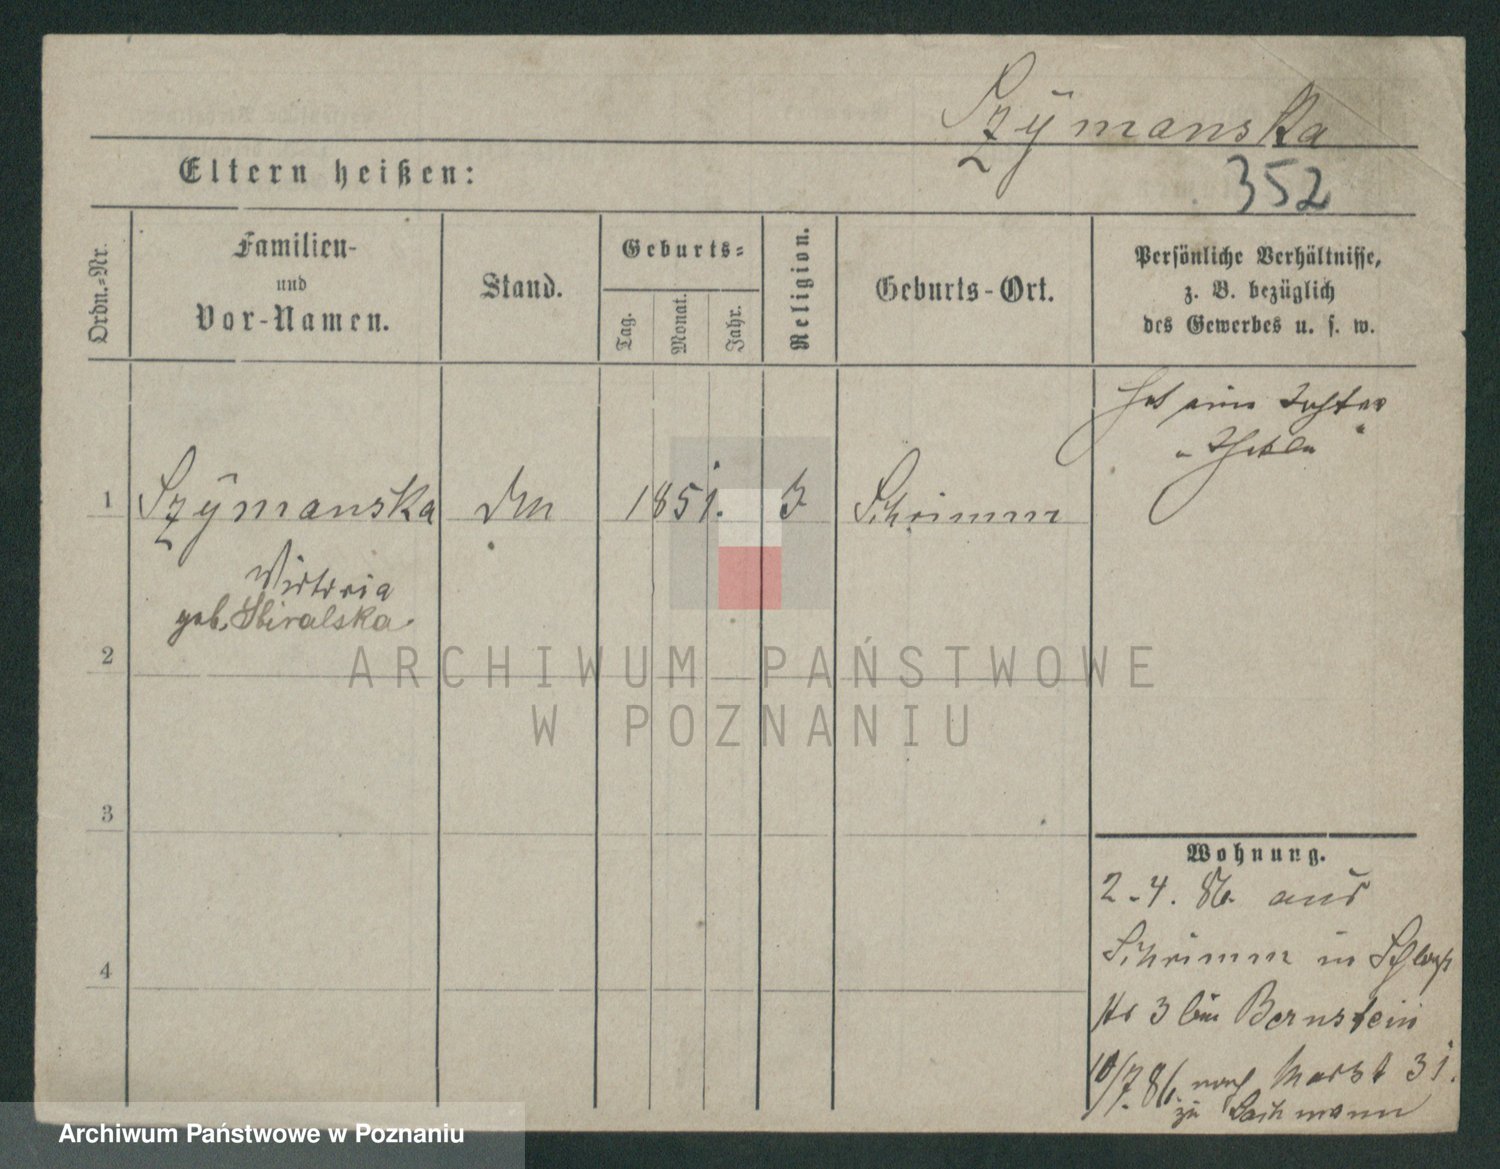 Szÿmanska
Eltern heißen:
352
Ordn.=Nr.
Familien-
und
Vor-Namen.
Stand.
Geburts=
Tag.
Monat.
Jahr.
Religion.
Geburts-Ort.
Persönliche Verhältnisse,
z. B. bezüglich
des Gewerbes u. s. w.
hat eine Tochter
1
Szÿmanska
1851.
Schrimm
Wictoria
geb.
2
3
4
Wohnung.
2-4. 86. aus
Schrimm in
3 bei Bernstein
10/7. 86. nach Markt 31.
zu Lachmann
ARCHIWUM PAŃSTWOWE
W POZNANIU
Archiwum Państwowe w Poznaniu